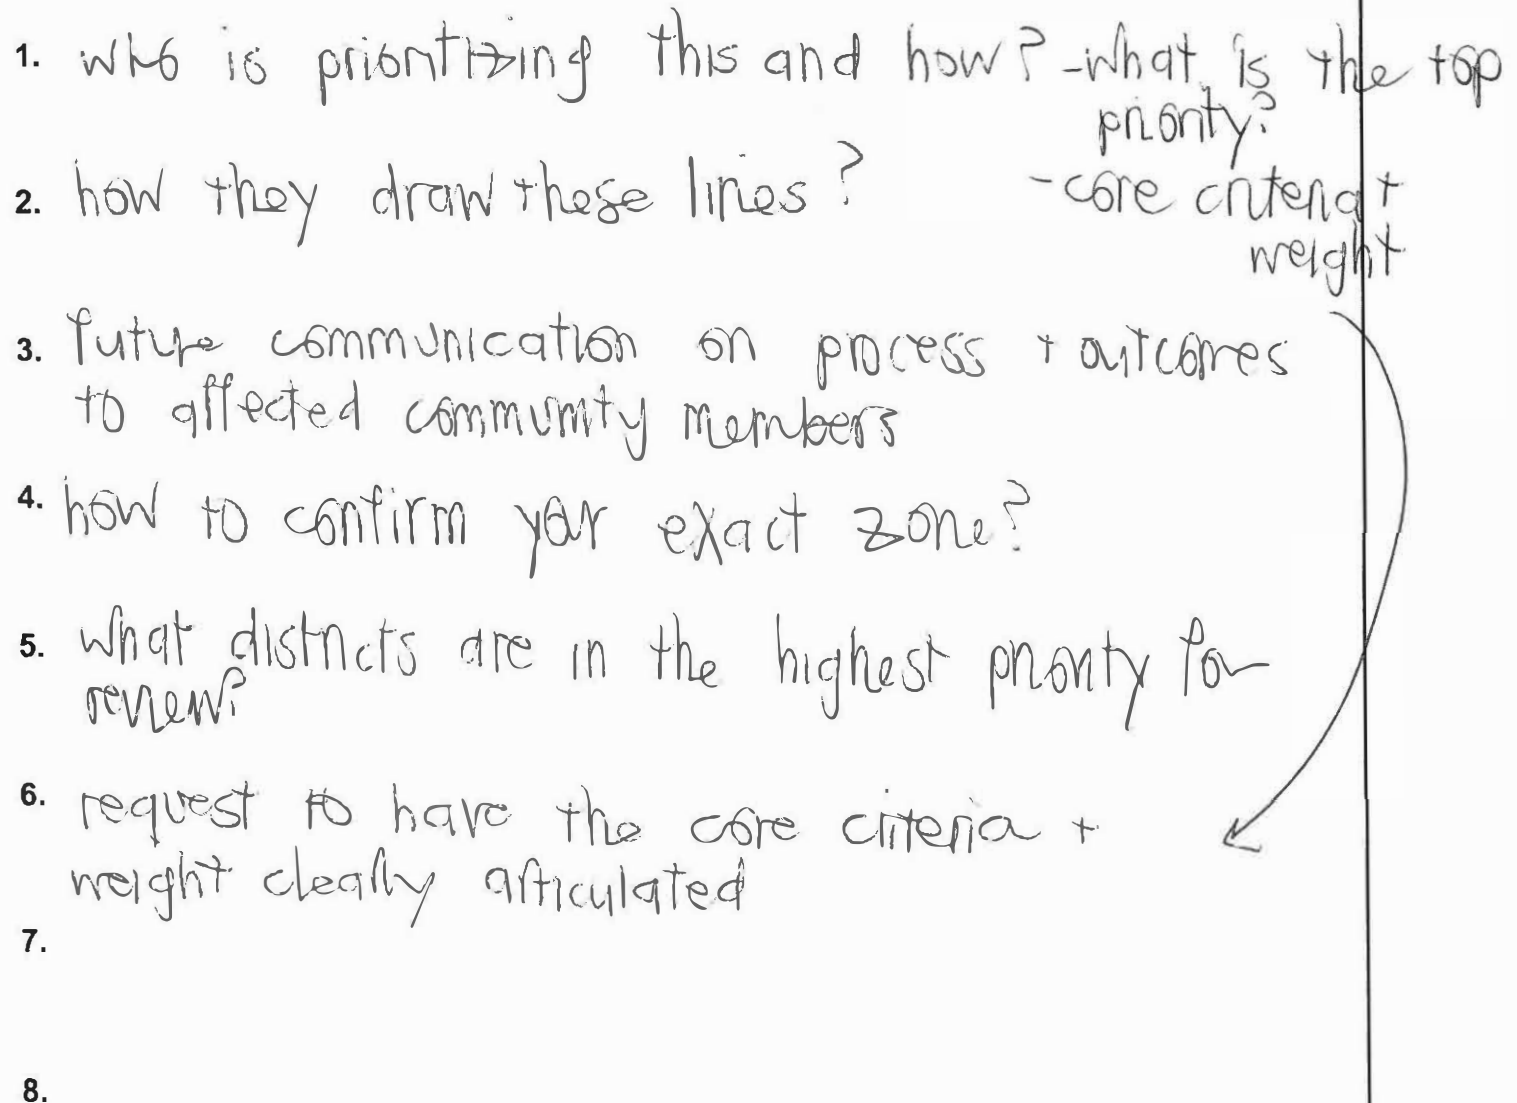 1. who is prioritizing this and how? - what is the top
priority?
- core criteria +
weight
2. how they draw these lines?
3. future communication on process + outcomes
to affected community members
4. how to confirm your exact zone?
5. what districts are in the highest priority for
review?
6. request to have the core criteria +
weight clearly articulated
7.
8.